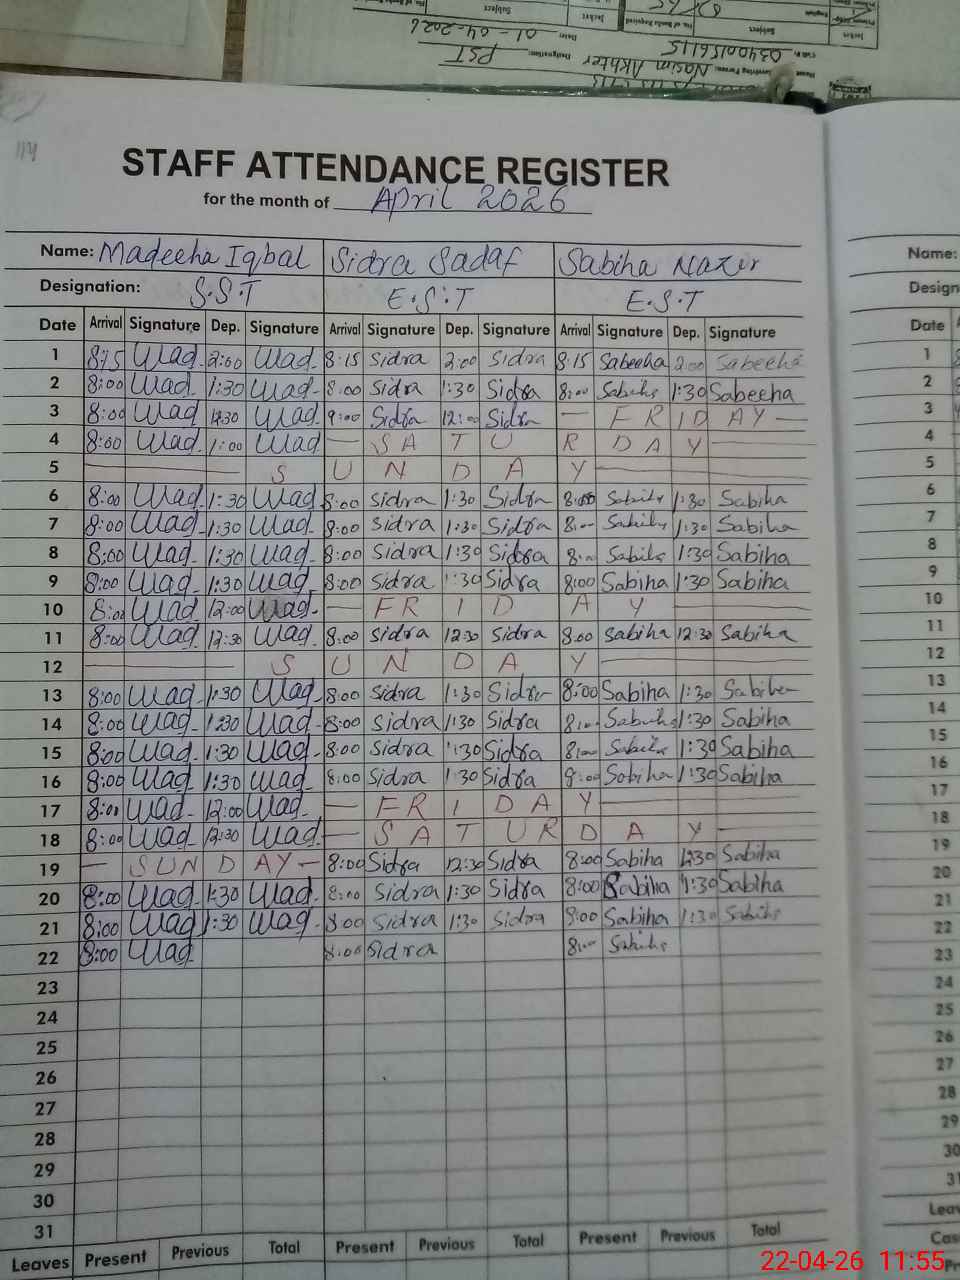 Nasim Akhter Designation: PST
03400156115 Date: 01-04-2026
114
STAFF ATTENDANCE REGISTER
for the month of April 2026
Name: Madeeha Iqbal Sidra Sadaf Sabiha Nazir
Designation: S.S.T E.S.T E.S.T
Date Arrival Signature Dep. Signature Arrival Signature Dep. Signature Arrival Signature Dep. Signature
1 8:15 2:00 8:15 Sidra 2:00 Sidra 8:15 Sabeeha 2:00 Sabeeha
2 8:00 1:30 8:00 Sidra 1:30 Sidra 8:00 Sabiha 1:30 Sabeeha
3 8:00 12:30 9:00 Sidra 12:00 Sidra — FRIDAY —
4 8:00 1:00 — SATURDAY —
5 — SUNDAY —
6 8:00 1:30 8:00 Sidra 1:30 Sidra 8:00 Sabiha 1:30 Sabiha
7 8:00 1:30 8:00 Sidra 1:30 Sidra 8:00 Sabiha 1:30 Sabiha
8 8:00 1:30 8:00 Sidra 1:30 Sidra 8:00 Sabiha 1:30 Sabiha
9 8:00 1:30 8:00 Sidra 1:30 Sidra 8:00 Sabiha 1:30 Sabiha
10 8:00 12:00 — FRIDAY —
11 8:00 12:30 8:00 Sidra 12:30 Sidra 8:00 Sabiha 12:30 Sabiha
12 — SUNDAY —
13 8:00 1:30 8:00 Sidra 1:30 Sidra 8:00 Sabiha 1:30 Sabiha
14 8:00 1:30 8:00 Sidra 1:30 Sidra 8:00 Sabiha 1:30 Sabiha
15 8:00 1:30 8:00 Sidra 1:30 Sidra 8:00 Sabiha 1:30 Sabiha
16 8:00 1:30 8:00 Sidra 1:30 Sidra 8:00 Sabiha 1:30 Sabiha
17 8:00 12:00 — FRIDAY —
18 8:00 12:30 — SATURDAY —
19 — SUNDAY — 8:00 Sidra 12:30 Sidra 8:00 Sabiha 1:30 Sabiha
20 8:00 1:30 8:00 Sidra 1:30 Sidra 8:00 Sabiha 1:30 Sabiha
21 8:00 1:30 8:00 Sidra 1:30 Sidra 8:00 Sabiha 1:30 Sabiha
22 8:00 8:00 Sidra 8:00 Sabiha
23
24
25
26
27
28
29
30
31
Leaves Present Previous Total Present Previous Total Present Previous Total
Name:
Design
Date
1
2
3
4
5
6
7
8
9
10
11
12
13
14
15
16
17
18
19
20
21
22
23
24
25
26
27
28
29
30
31
Leav
Cas
22-04-26 11:55